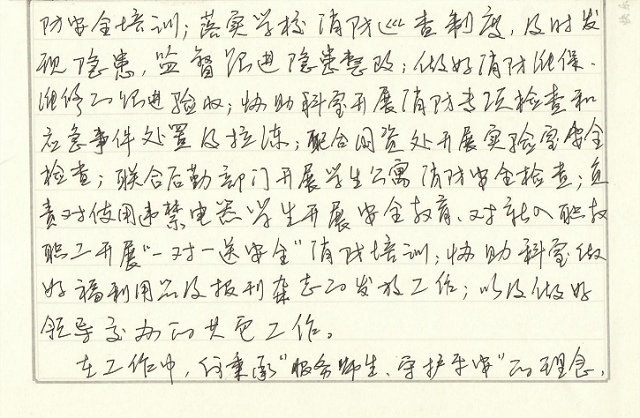 防安全培训；落实学校消防巡查制度，及时发
现隐患，监督跟进隐患整改；做好消防维保、
维修的跟进验收；协助科室开展消防专项检查和
应急事件处置及拉练；配合国资处开展实验室安全
检查；联合后勤部门开展学生公寓消防安全检查；负
责对使用违禁电器学生开展安全教育、对新入职教
职工开展“一对一送安全”消防培训；协助科室做
好福利用品及报刊杂志的发放工作；以及做好
领导交办的其它工作。
在工作中，何秉承“服务师生、守护平安”的理念，